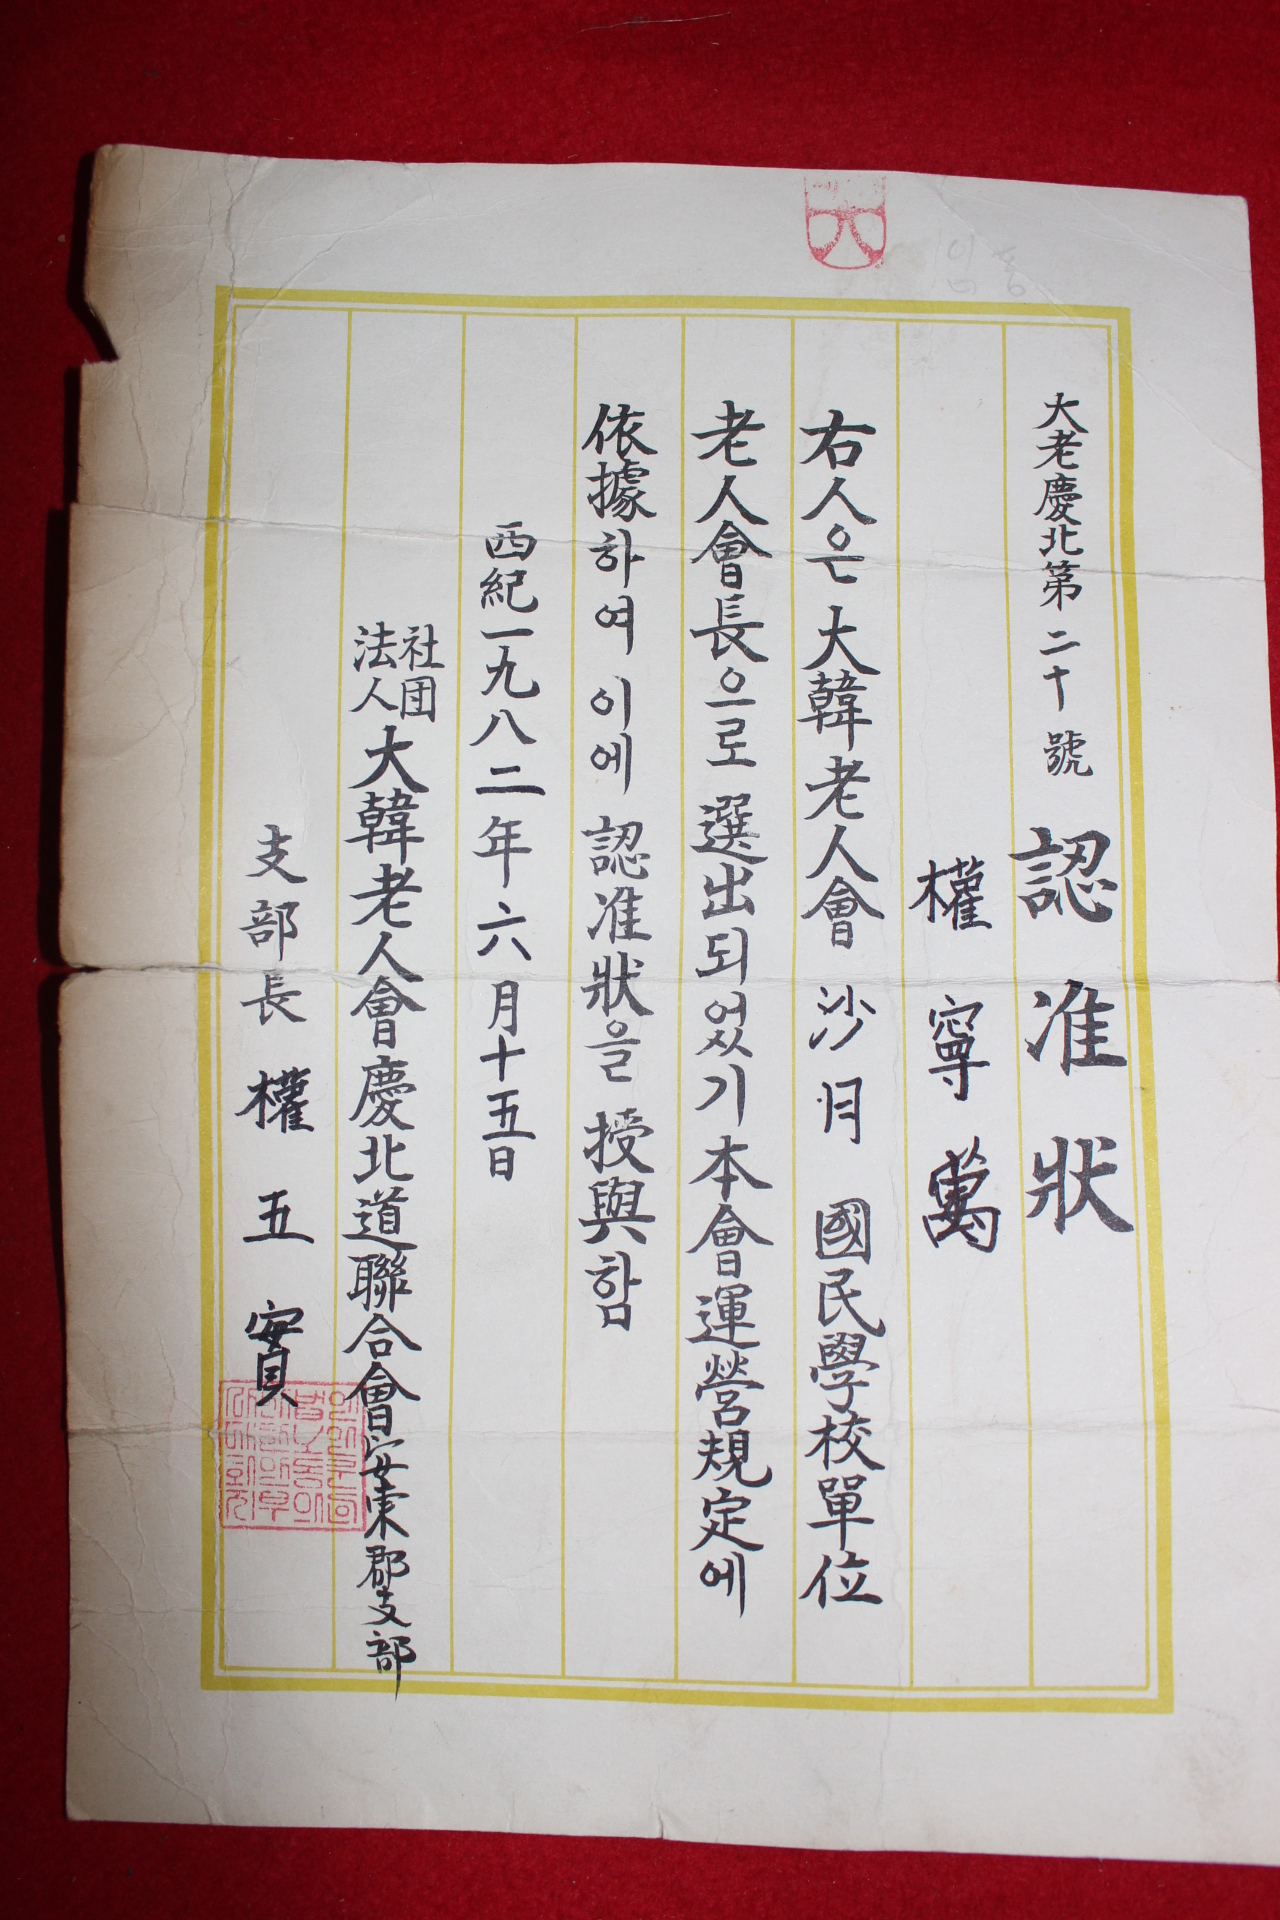 大老慶北第二十號 認准狀
權寧萬
右人은 大韓老人會 沙月 國民學校單位
老人會長으로 選出되었기 本會運營規定에
依據하여 이에 認准狀을 授與함
西紀一九八二年六月十五日
社团法人大韓老人會慶北道聯合會安東郡支部
支部長 權五